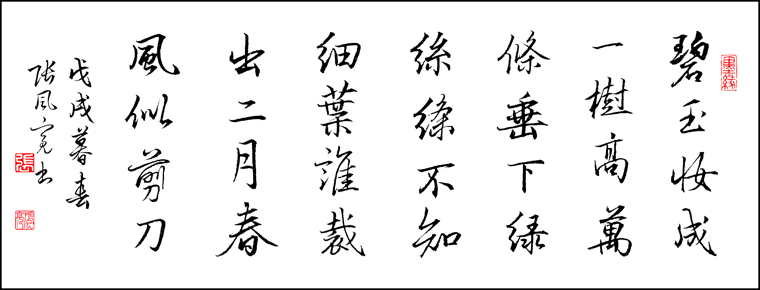 碧玉妆成
一樹高萬
條垂下绿
絲縧不知
細葉誰裁
出二月春
風似剪刀
戊戌暮春
张风宽书
張